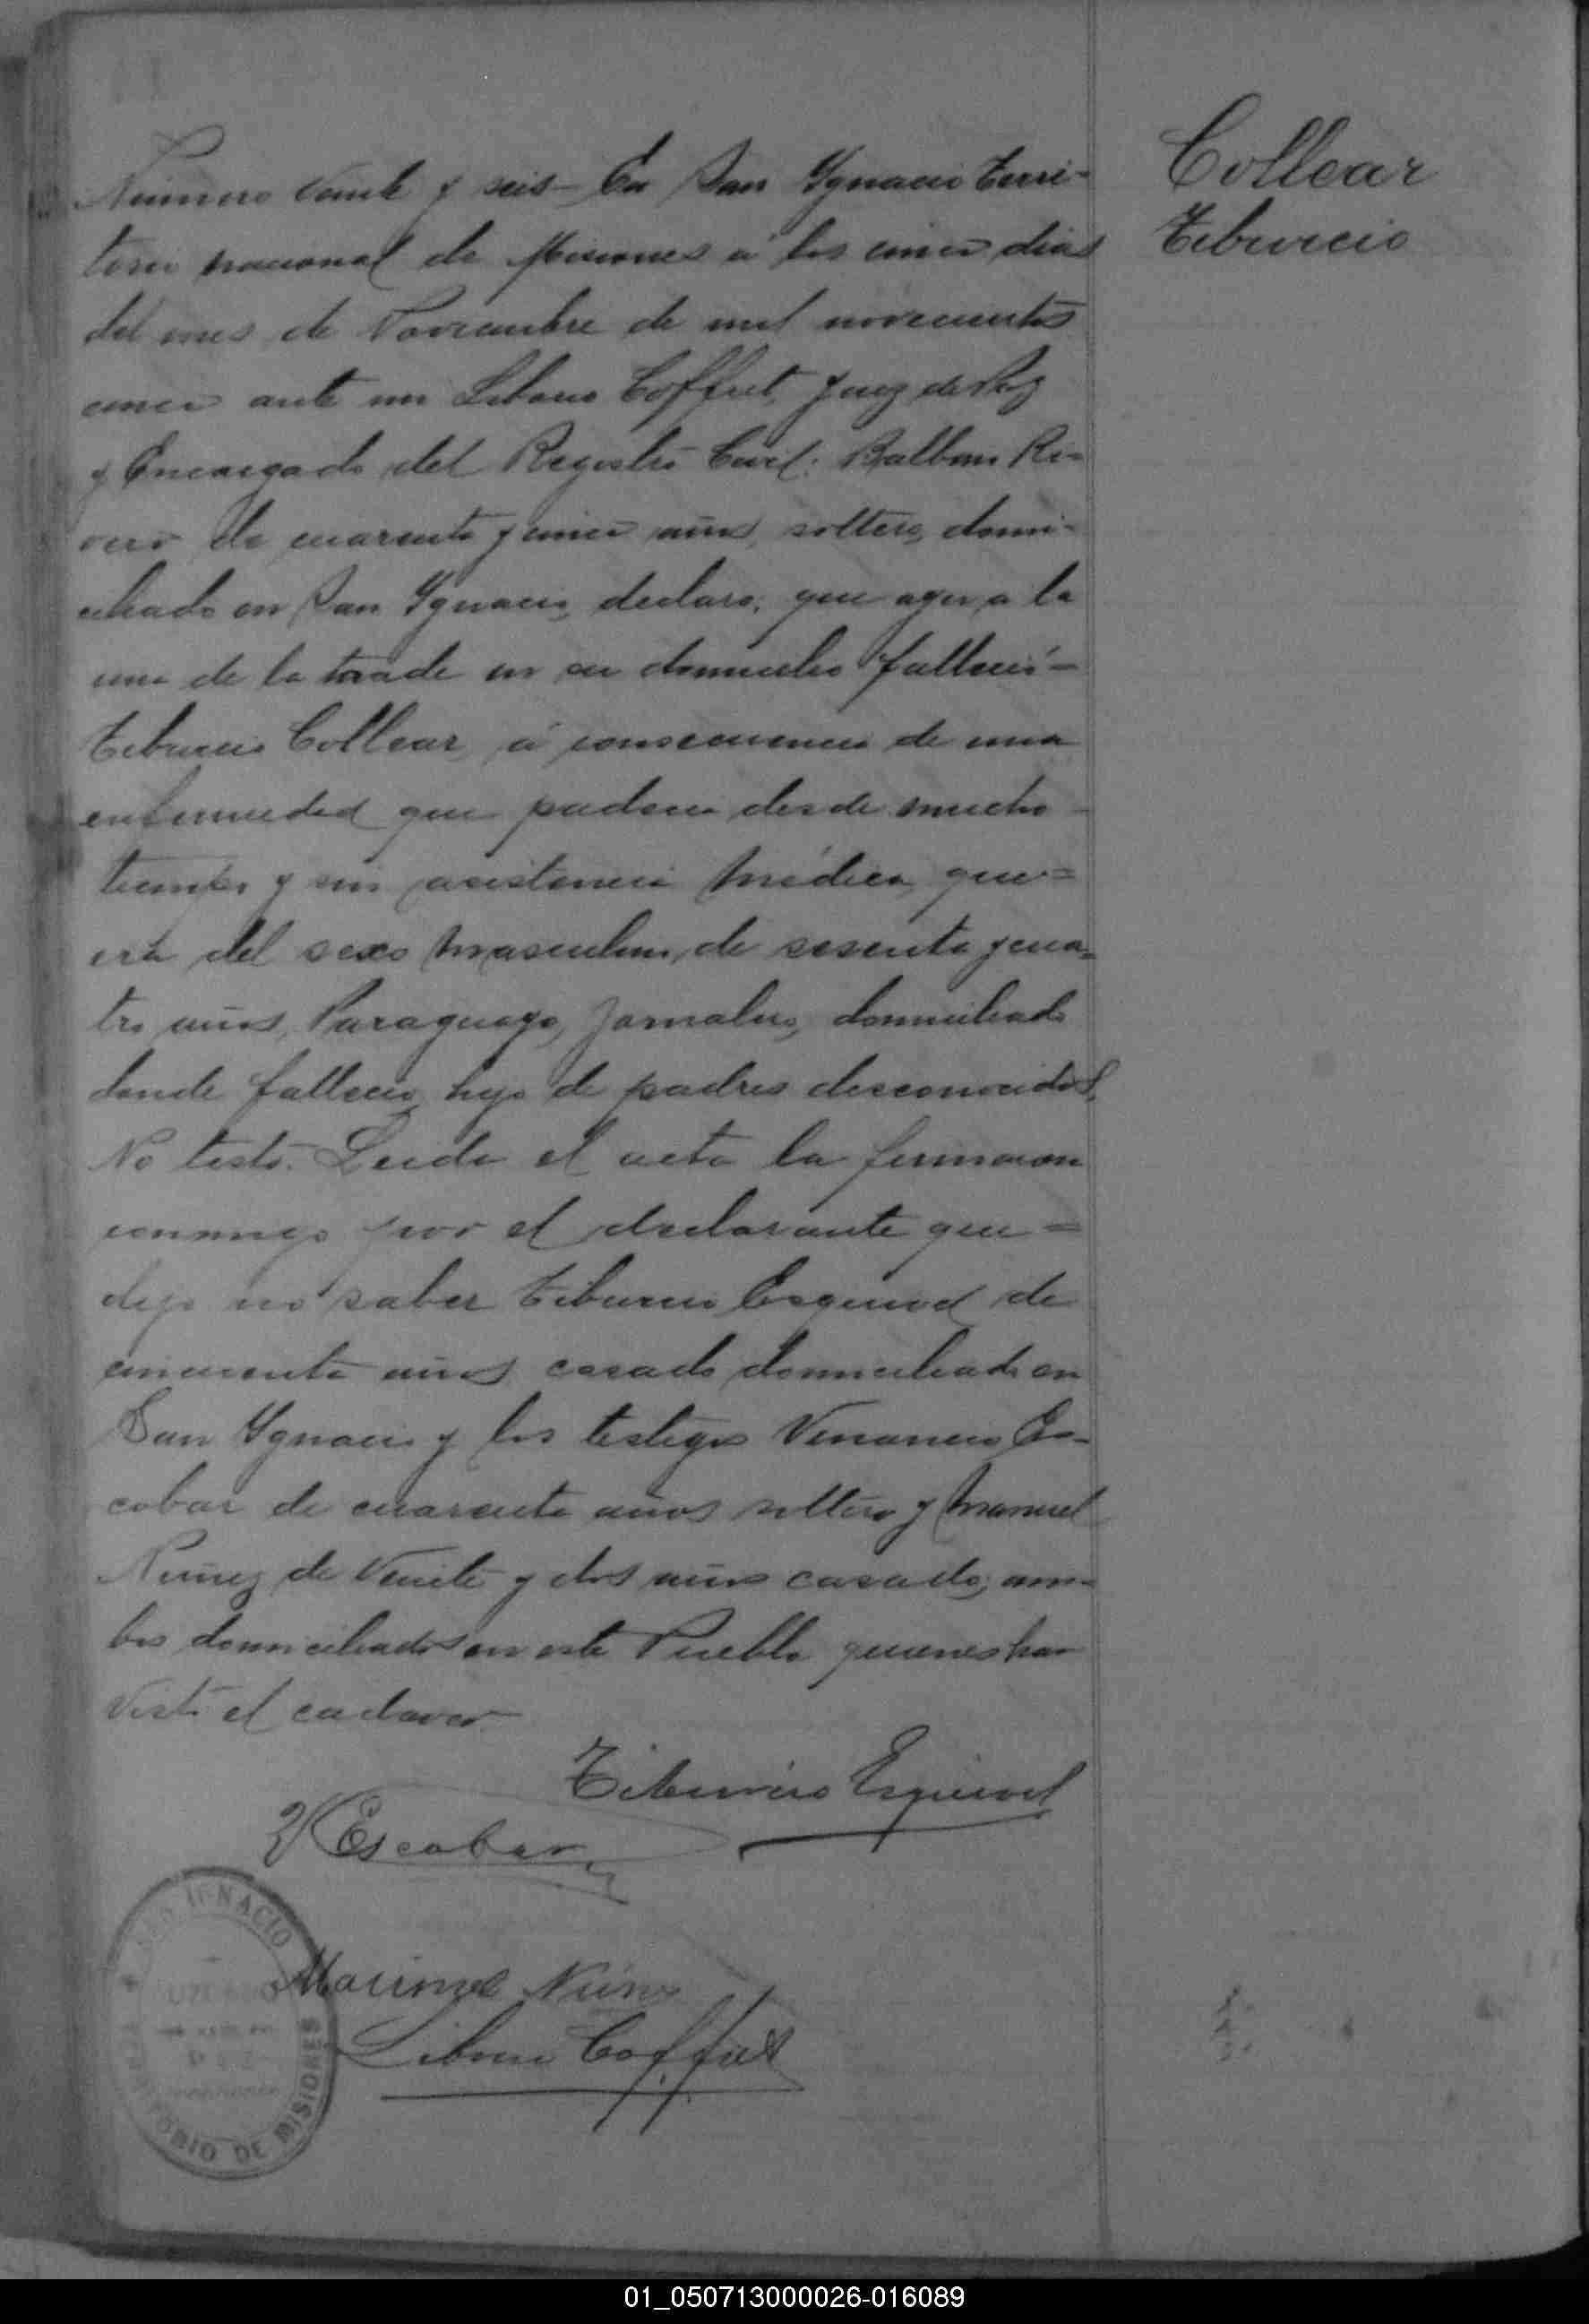 Collear
Tiburcio
Número Veinte y seis En San Ygnacio Terri-
torio nacional de Misiones á los cinco dias
del mes de Noviembre de mil novecientos
cinco ante mi Liborio Coffret, Juez de Paz
y Encargado del Registro Civil: Balbino Ri-
vero de cuarenta y cinco años, soltero, domi-
ciliado en San Ygnacio, declaro, que ayer a la
una de la tarde en su domicilio falleció
Tiburcio Collear, á consecuencia de una
enfermedad que padecia desde mucho
tiempo y sin asistencia médica, que =
era del sexo masculino, de sesenta y cua=
tro años, Paraguayo, jornalero, domiciliado
donde fallecio, hijo de padres desconocidos,
No testó. Leida el acta la firmaron
conmigo por el declarante que =
dijo no saber Tiburcio Esquivel de
cincuenta años casado domiciliado en
San Ygnacio y los testigos Venancio Es-
cobar de cuarenta años soltero y Manuel
Nuñez de Veinte y dos años casado, am-
bos domiciliados en este Pueblo quienes han
visto el cadaver
Tiburcio Esquivel
V Escobar
Manuel Nuñez
Liborio Coffret
SAN IGNACIO
TERRITORIO DE MISIONES
01_050713000026-016089